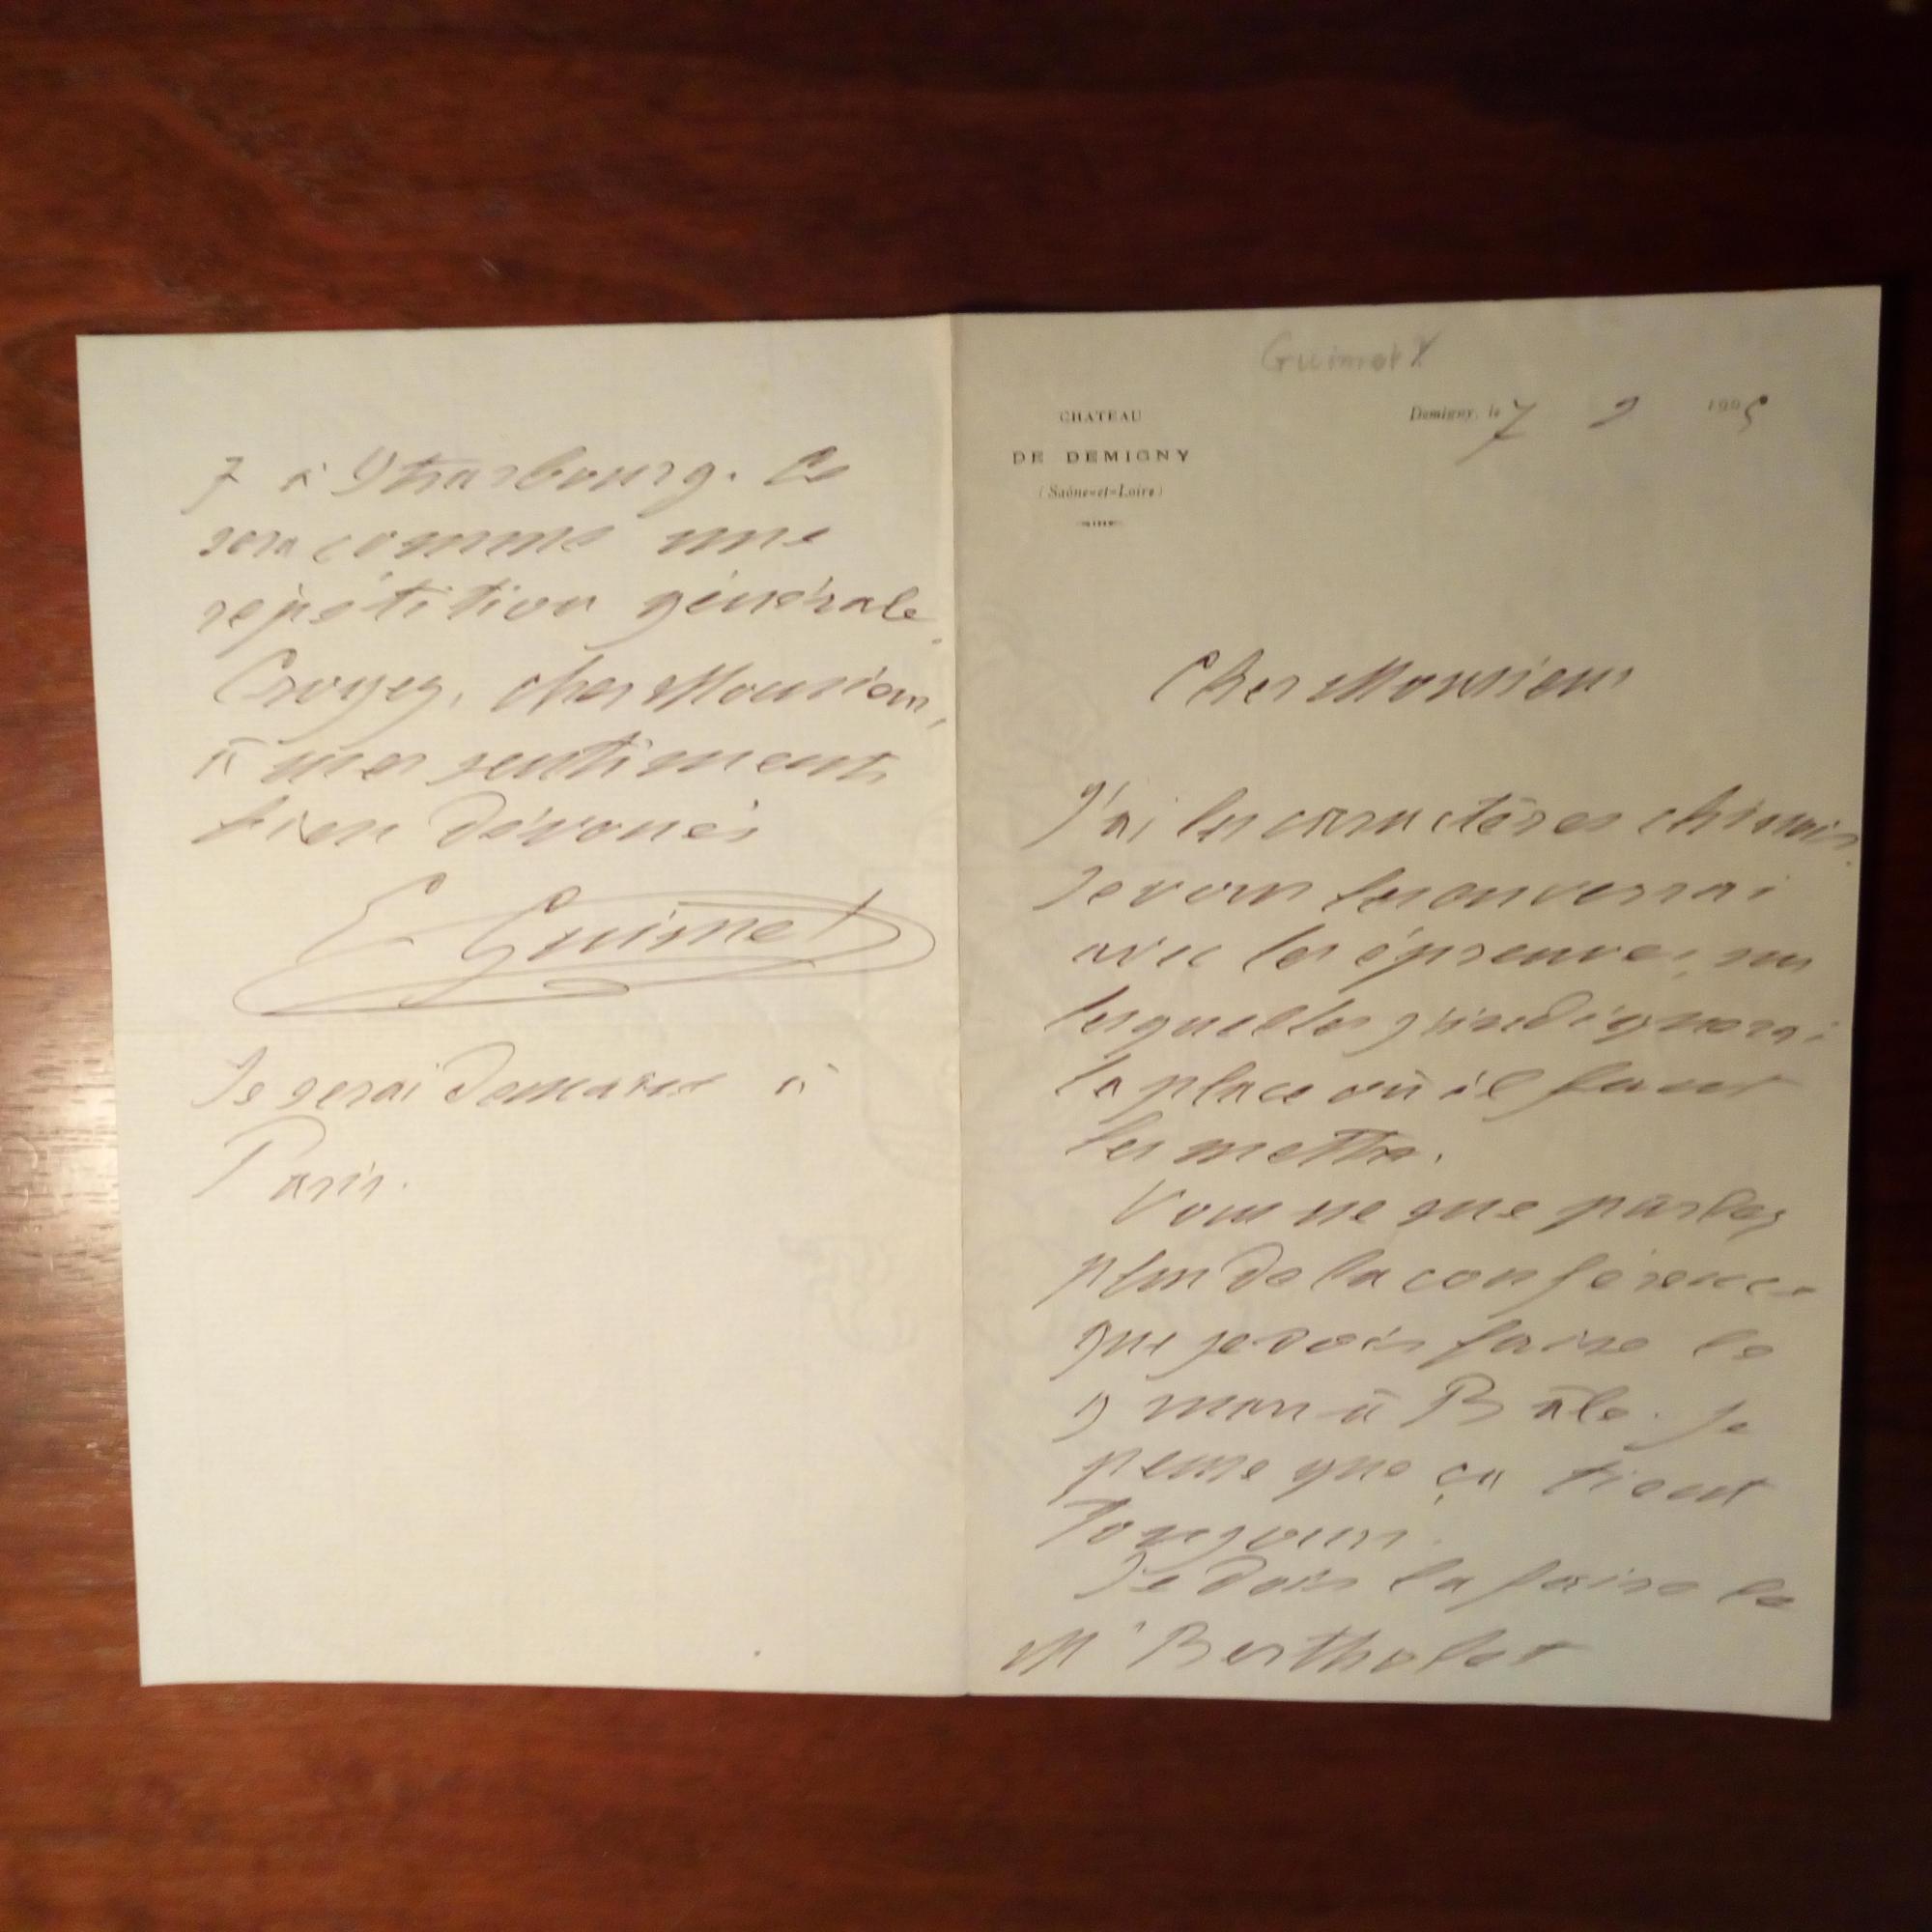 Guimet
CHATEAU
DE DEMIGNY
(Saône-et-Loire)
Demigny, le 7 2 1905
Cher Monsieur
J'ai les caractères chinois.
Je vous les enverrai
avec les épreuves sur
lesquelles j'indiquerai
la place où il faut
les mettre.
Vous ne me parlez
plus de la conférence
que je dois faire le
9 mars à Bâle. Je
pense que ça tient
toujours.
Je dois la faire le
Mr Bertholet
7 à Strasbourg. Ce
sera comme une
répétition générale.
Croyez, cher Monsieur,
à mes sentiments
bien dévoués
E Guimet
Je serai demain à
Paris.